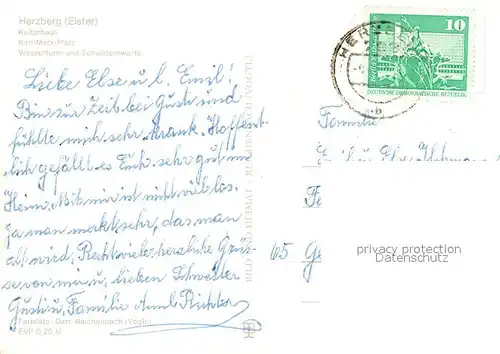 Herzberg (Elster)
Kulturhaus
Karl-Marx-Platz
Wasserturm und Schulsternwarte
Liebe Else u. l. Emil!
Bin zur Zeit bei Gusti und
fühlte mich sehr krank. Hoffent-
lich gefällt es Euch sehr gut im
Heim. Mit mir ist nicht viel los.
Ja man merkt sehr, das man
alt wird. Recht viele herzliche Grüs-
se von mir u. lieben Schwester
Gusti u. Familie Richter
Farbfoto: Darr, Reichenbach (Vogtl)
EVP 0,20 M
10
DEUTSCHE DEMOKRATISCHE REPUBLIK
HERZ
Familie
Emil u. Else
Fe
65 Ge
privacy protection
Datenschutz